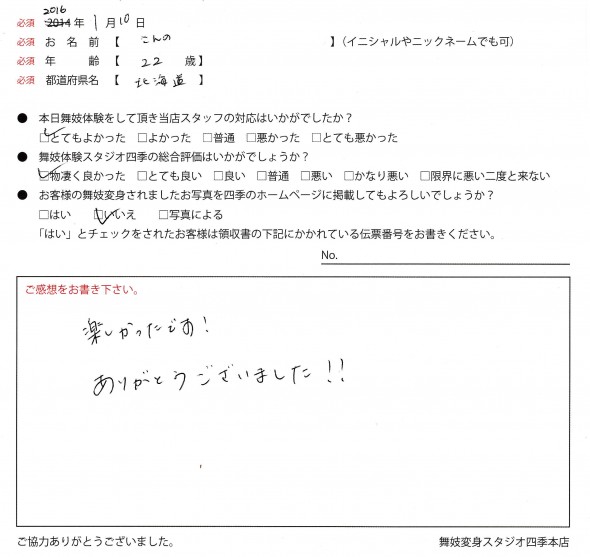 2016
必須 2014年 1月10日
必須 お名前【 こんの 】(イニシャルやニックネームでも可)
必須 年齢【 22 歳】
必須 都道府県名【 北海道 】
● 本日舞妓体験をして頂き当店スタッフの対応はいかがでしたか？
☑とてもよかった □よかった □普通 □悪かった □とても悪かった
● 舞妓体験スタジオ四季の総合評価はいかがでしょうか？
☑物凄く良かった □とても良い □良い □普通 □悪い □かなり悪い □限界に悪い二度と来ない
● お客様の舞妓変身されましたお写真を四季のホームページに掲載してもよろしいでしょうか？
□はい ☑いいえ □写真による
「はい」とチェックをされたお客様は領収書の下記にかかれている伝票番号をお書きください。
No.
ご感想をお書き下さい。
楽しかったです！
ありがとうございました！！
ご協力ありがとうございました。 舞妓変身スタジオ四季本店